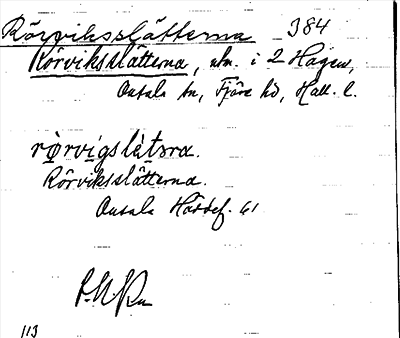 Rörviksslätterna 384
Rörviksslätterna, utm. i 2 Hagen,
Onsala sn, Fjäre hd, Hall. l.
rörvigslätsra.
Rörviksslätterna.
Onsala Härdef. 61
113